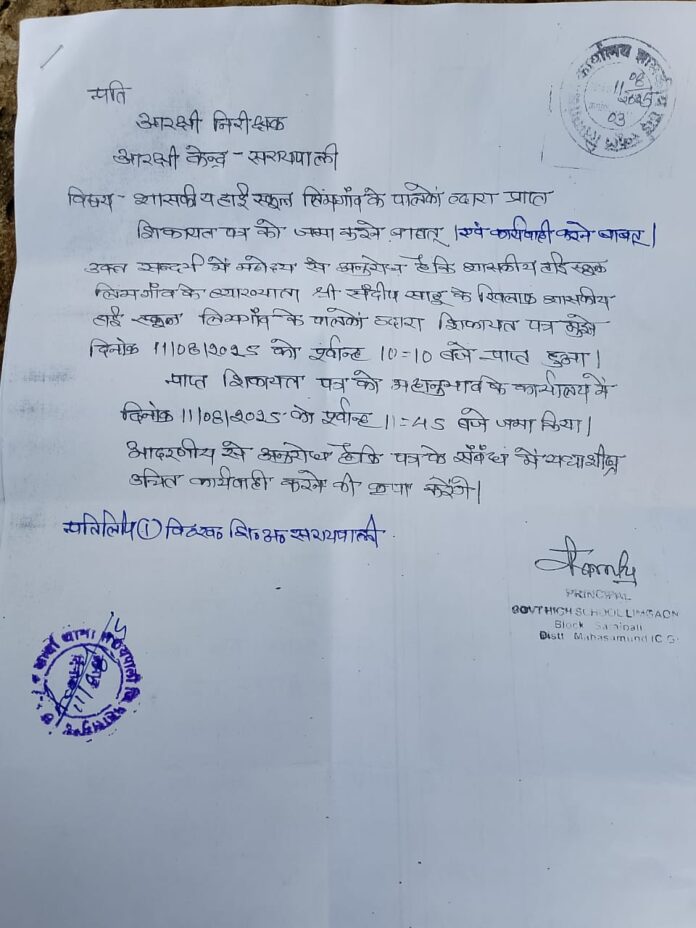 प्रति
आरक्षी निरीक्षक
आरक्षी केन्द्र - सरायपाली
विषय - शासकीय हाई स्कूल लिमगाँव के पालकों व्दारा प्राप्त
शिकायत पत्र को जमा करने बाबत् । एवं कार्यवाही करने बाबत् ।
उक्त सन्दर्भ में महोदय से अनुरोध है कि शासकीय हाई स्कूल
लिमगाँव के व्याख्याता श्री संदीप साहू के खिलाफ शासकीय
हाई स्कूल लिमगाँव के पालकों व्दारा शिकायत पत्र मुझे
दिनांक 11/08/2025 को पूर्वान्ह 10=10 बजे प्राप्त हुआ ।
प्राप्त शिकायत पत्र को महानुभाव के कार्यालय में
दिनांक 11/08/2025 को पूर्वान्ह 11=45 बजे जमा किया ।
आदरणीय से अनुरोध है कि पत्र के संबंध में यथाशीघ्र
उचित कार्यवाही करने की कृपा करेंगे ।
प्रतिलिपि ① वि०ख० शि०अ० सरायपाली
PRINCIPAL
GOVT HIGH SCHOOL LIMGAON
Block Saraipali
Distt Mahasamund (C.G.
कार्यालय
11 08
2025
03
थाना सरायपाली जि. महासमुन्द